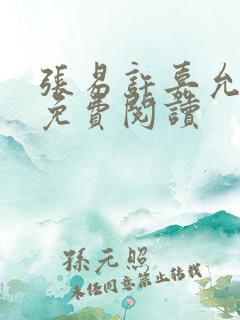 張易許嘉允
免費閱讀
孫元照
未經同意禁止轉載